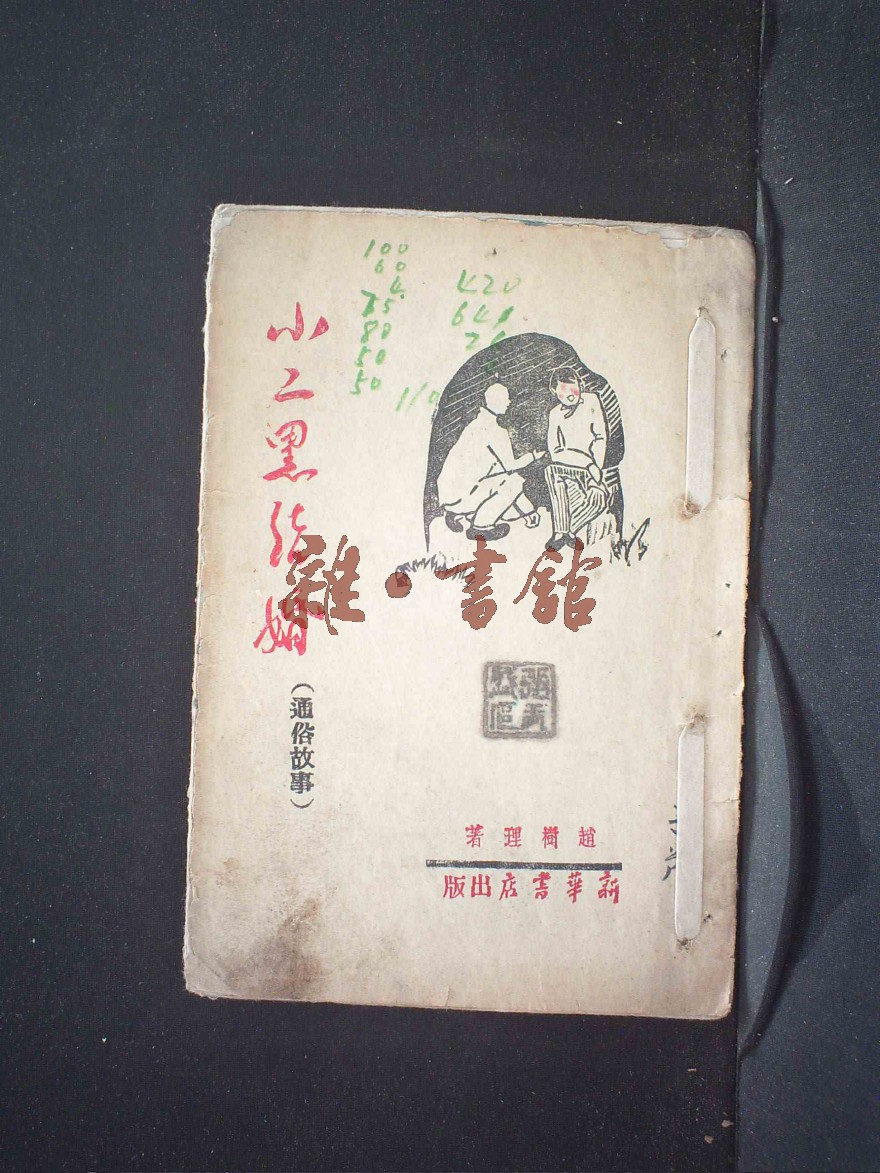 小二黑结婚
（通俗故事）
100
60
4
75
80
50
50
110
420
640
雜·書館
趙樹理著
新華書店出版